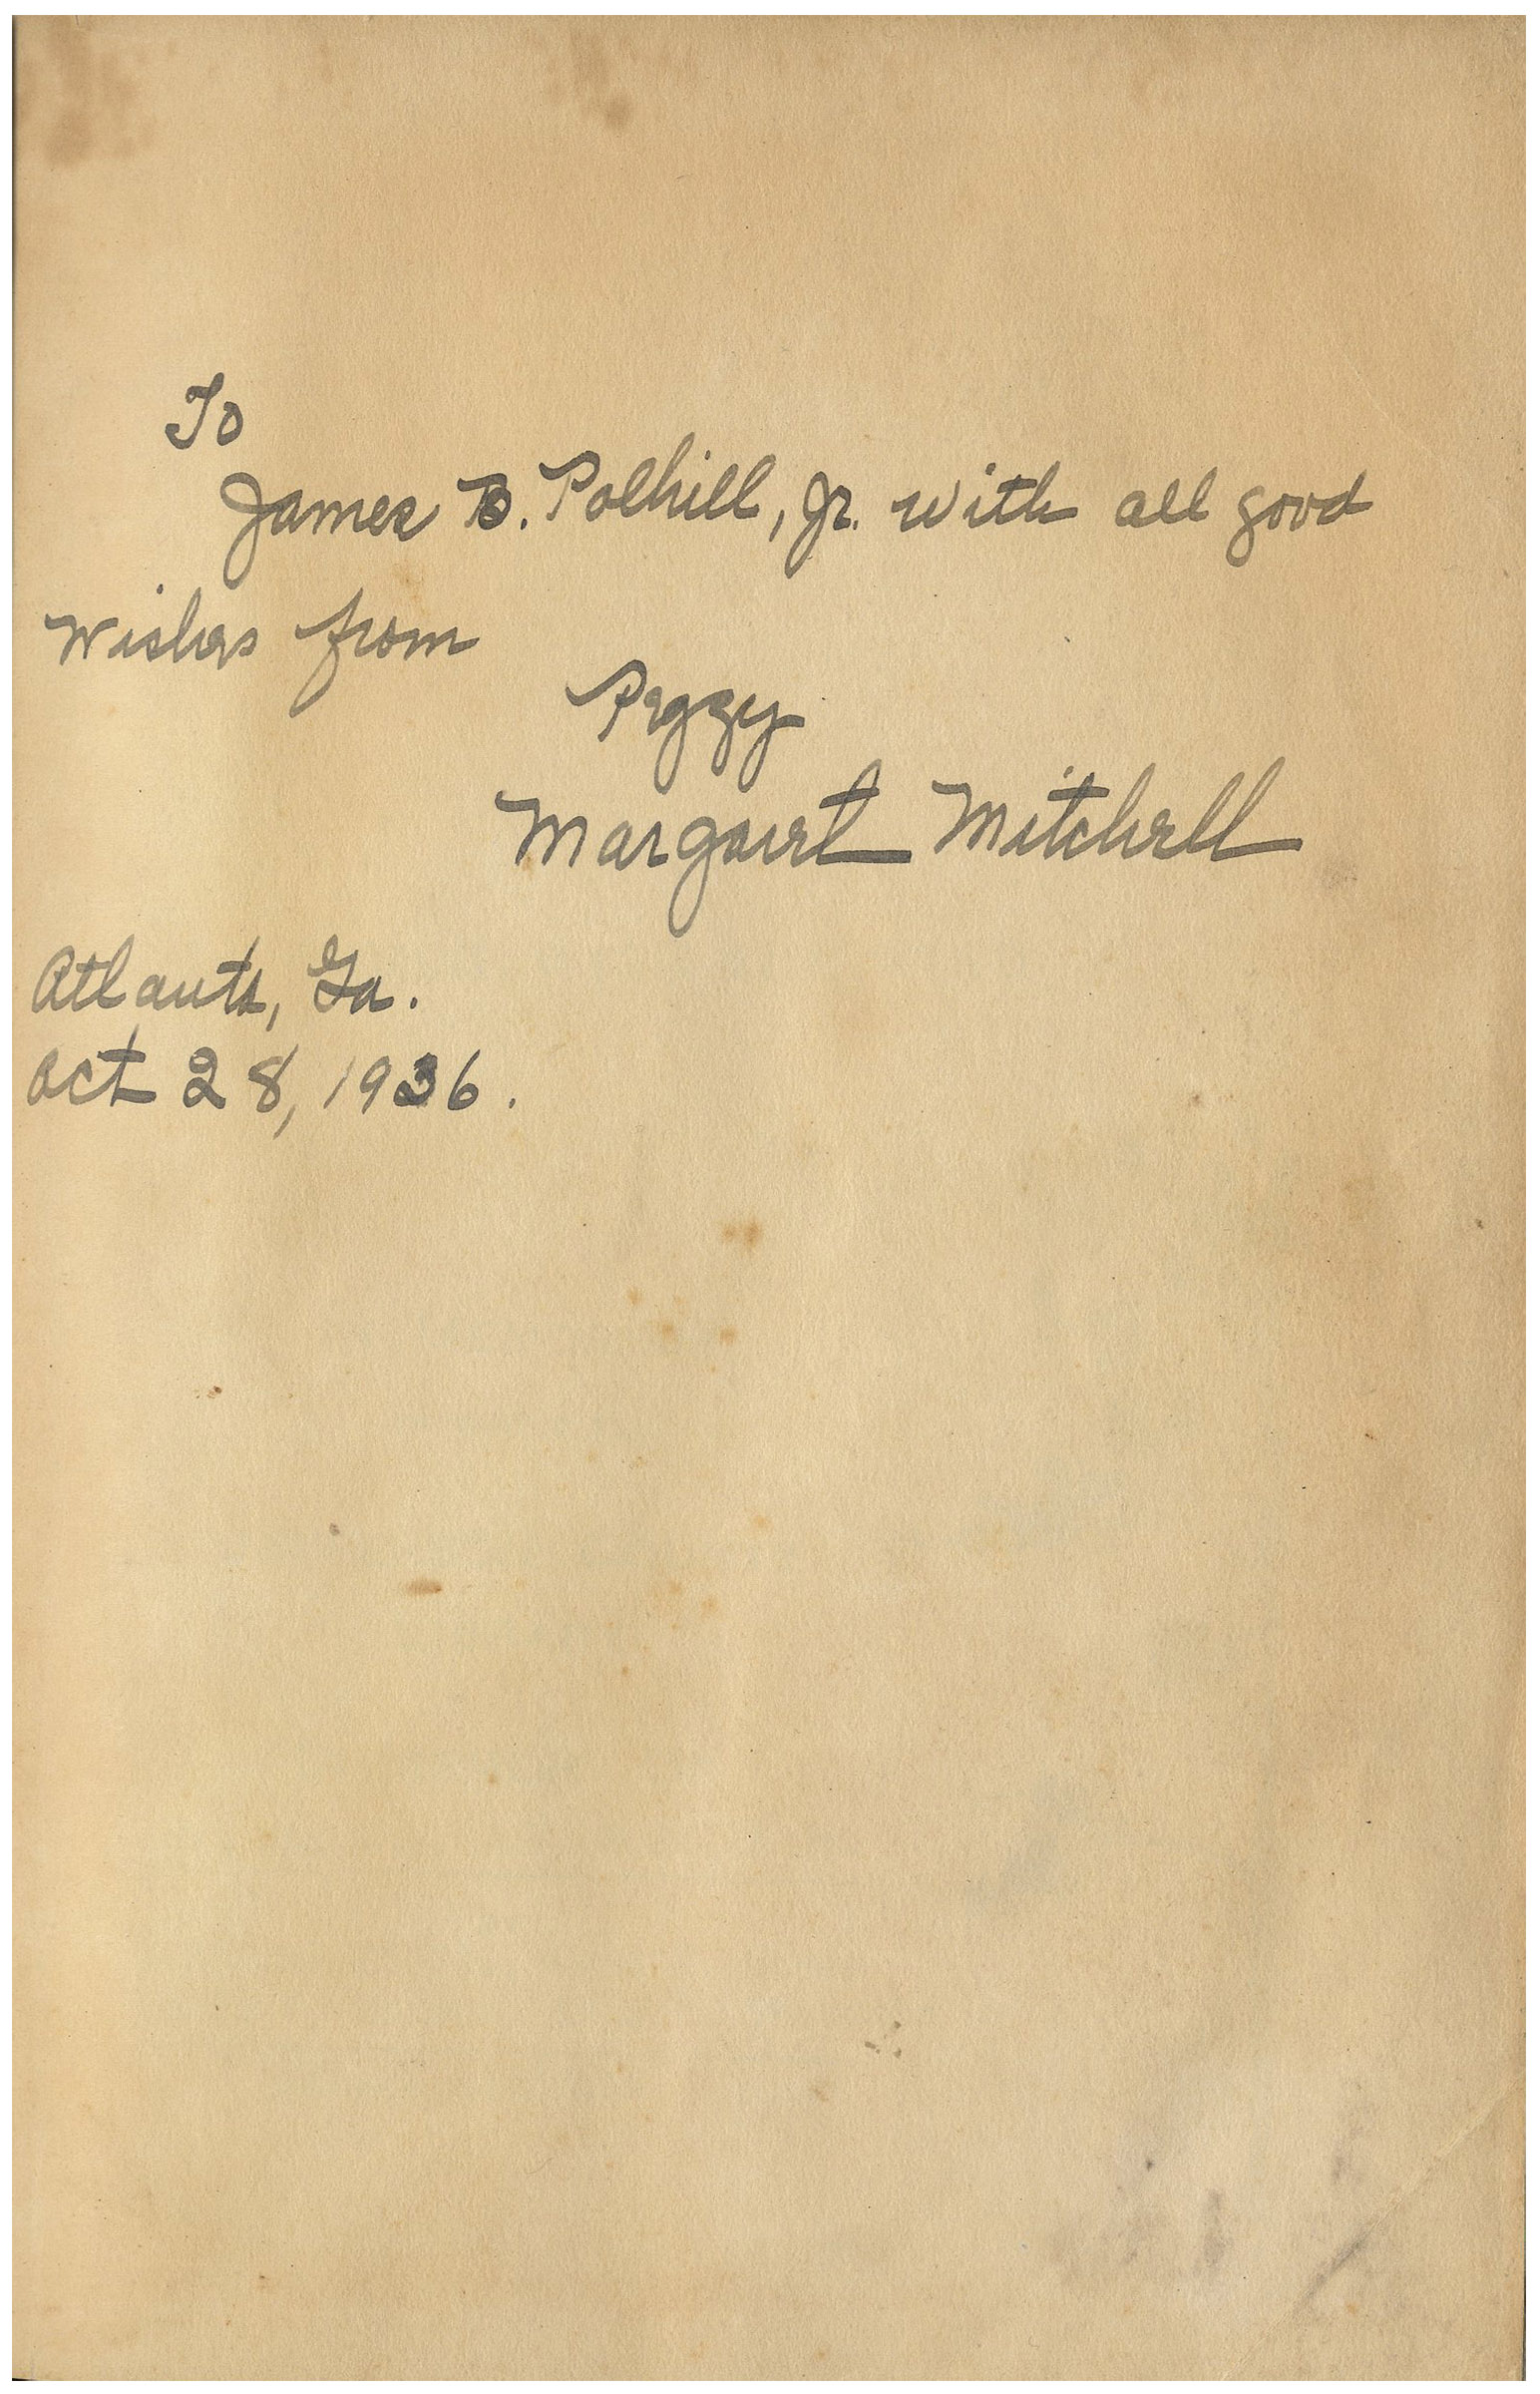 To
James B. Polhill, Jr. with all good
wishes from
Peggy
Margaret Mitchell
Atlanta, Ga.
Oct 28, 1936.